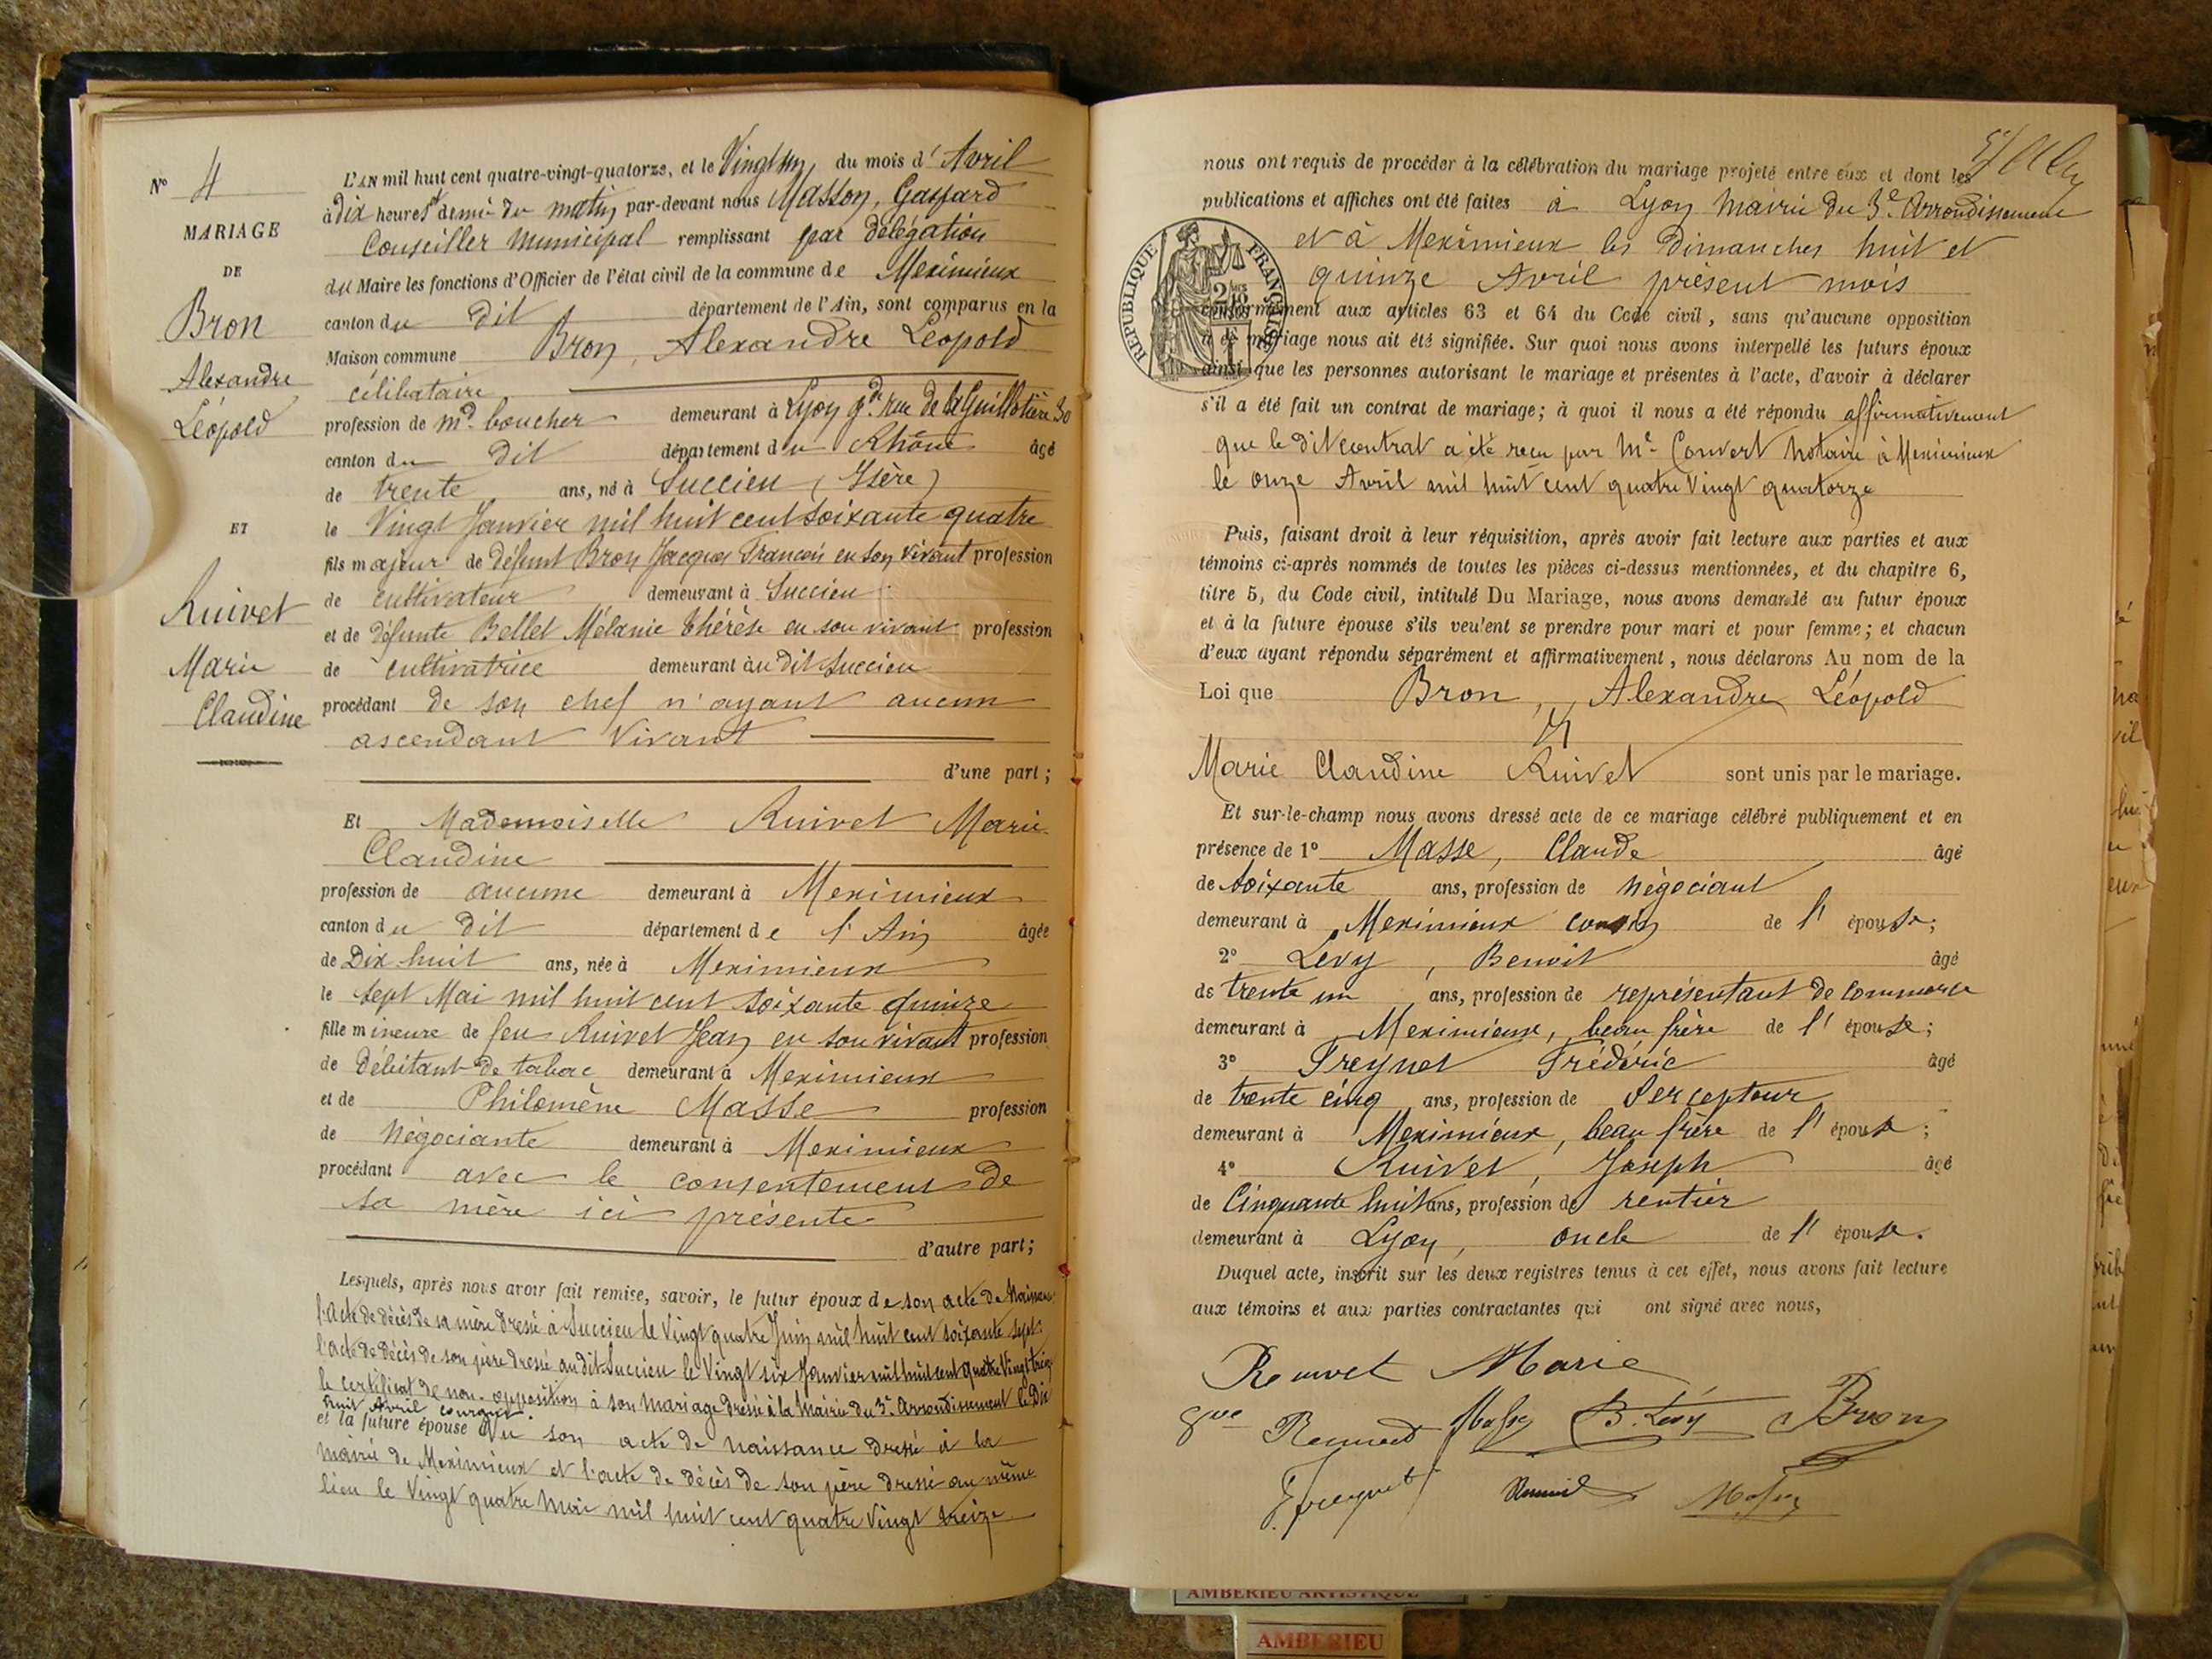 N° 4
MARIAGE
DE
Bron
Alexandre
Léopold
ET
Ruivet
Marie
Claudine
L'AN mil huit cent quatre-vingt-quatorze, et le Vingt un du mois d'Avril
à dix heures et demie du matin par-devant nous Masson, Gaspard
Conseiller Municipal remplissant par délégation
du Maire les fonctions d'Officier de l'état civil de la commune de Meximieux
canton du dit département de l'Ain, sont comparus en la
Maison commune Bron, Alexandre Léopold
célibataire
profession de md boucher demeurant à Lyon gde rue de la Guillotière 30
canton du dit département du Rhône âgé
de trente ans, né à Succieu (Isère)
le Vingt Janvier mil huit cent soixante quatre
fils majeur de défunt Bron Jacques François en son vivant profession
de cultivateur demeurant à Succieu
et de défunte Bellet Mélanie Thérèse en son vivant profession
de cultivatrice demeurant au dit Succieu
procédant de son chef n'ayant aucun
ascendant vivant
d'une part;
Et Mademoiselle Ruivet Marie
Claudine
profession de aucune demeurant à Meximieux
canton du dit département de l'Ain âgée
de Dix huit ans, née à Meximieux
le sept Mai mil huit cent soixante quinze
fille mineure de feu Ruivet Jean en son vivant profession
de débitant de tabac demeurant à Meximieux
et de Philomène Masse profession
de Négociante demeurant à Meximieux
procédant avec le consentement de
sa mère ici présente
d'autre part;
Lesquels, après nous avoir fait remise, savoir, le futur époux de son acte de Naissance
l'acte de décès de sa mère dressé à Succieu le Vingt quatre Juin mil huit cent soixante sept
l'acte de décès de son père dressé audit Succieu le Vingt six Janvier mil huit cent quatre Vingt treize
le certificat de non-opposition à son mariage dressé à la Mairie du 3e Arrondissement le Dix
huit Avril courant
et la future épouse de son acte de naissance dressé à la
mairie de Meximieux et l'acte de décès de son père dressé au même
lieu le Vingt quatre Mai mil huit cent quatre Vingt treize
nous ont requis de procéder à la célébration du mariage projeté entre eux et dont les
publications et affiches ont été faites à Lyon Mairie du 3e Arrondissement
et à Meximieux les Dimanches huit et
quinze Avril présent mois
RÉPUBLIQUE FRANÇAISE
conformément aux articles 63 et 64 du Code civil, sans qu'aucune opposition
à ce mariage nous ait été signifiée. Sur quoi nous avons interpellé les futurs époux
ainsi que les personnes autorisant le mariage et présentes à l'acte, d'avoir à déclarer
s'il a été fait un contrat de mariage; à quoi il nous a été répondu affirmativement
que le dit contrat a été reçu par Me Convert notaire à Meximieux
le onze Avril mil huit cent quatre Vingt quatorze
Puis, faisant droit à leur réquisition, après avoir fait lecture aux parties et aux
témoins ci-après nommés de toutes les pièces ci-dessus mentionnées, et du chapitre 6,
titre 5, du Code civil, intitulé Du Mariage, nous avons demandé au futur époux
et à la future épouse s'ils veulent se prendre pour mari et pour femme; et chacun
d'eux ayant répondu séparément et affirmativement, nous déclarons Au nom de la
Loi que Bron, Alexandre Léopold
Et
Marie Claudine Ruivet sont unis par le mariage.
Et sur-le-champ nous avons dressé acte de ce mariage célébré publiquement et en
présence de 1° Masse, Claude âgé
de soixante ans, profession de négociant
demeurant à Meximieux cousin de l'épouse;
2° Lévy, Benoit âgé
de trente un ans, profession de représentant de commerce
demeurant à Meximieux, beau frère de l'épouse;
3° Freynet Frédéric âgé
de trente cinq ans, profession de Percepteur
demeurant à Meximieux, beau frère de l'épouse;
4° Ruivet, Joseph âgé
de Cinquante huit ans, profession de rentier
demeurant à Lyon, oncle de l'épouse.
Duquel acte, inscrit sur les deux registres tenus à cet effet, nous avons fait lecture
aux témoins et aux parties contractantes qui ont signé avec nous,
Marie
B. Lévy Bron
AMBERIEU ARTISTIQUE
AMBERIEU